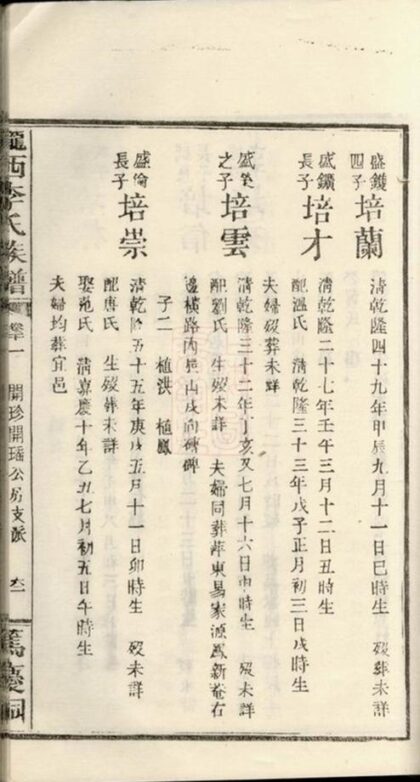 盛鑊四子 培蘭 清乾隆四十九年甲辰九月十一日巳時生 歿葬未詳
盛鑛長子 培才 清乾隆二十七年壬午三月十二日丑時生
配溫氏 清乾隆三十三年戊子正月初三日戌時生
夫婦歿葬未詳
之子 培雲 清乾隆三十二年丁亥又七月十六日申時生 歿未詳
配劉氏 生歿未詳 夫婦同葬萍東易家源鳳新菴右
邊橫路內艮山戌向磚碑
子二 植洪 植鳳
盛倫長子 培崇 清乾隆五十五年庚戌五月十一日卯時生
配唐氏 生歿葬未詳
娶范氏 清嘉慶十年乙丑七月初五日午時生
夫婦均葬宜邑
隴西李氏族譜 開珍開瑤公房支派 篤慶祠